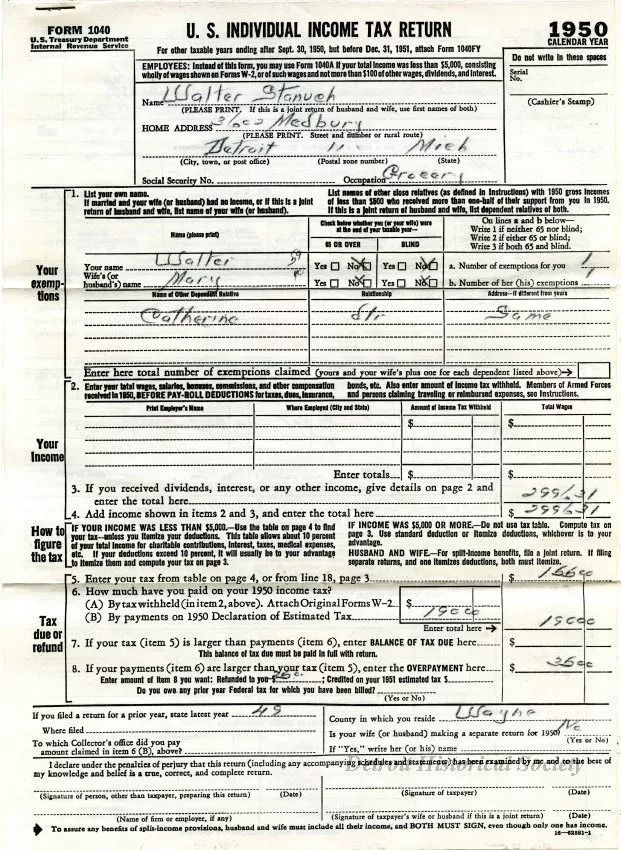 FORM 1040
U. S. Treasury Department
Internal Revenue Service
U. S. INDIVIDUAL INCOME TAX RETURN
For other taxable years ending after Sept. 30, 1950, but before Dec. 31, 1951, attach Form 1040FY
1950
CALENDAR YEAR
EMPLOYEES: Instead of this form, you may use Form 1040A if your total income was less than $5,000, consisting
wholly of wages shown on Forms W-2, or of such wages and not more than $100 of other wages, dividends, and interest.
Do not write in these spaces
Serial
No.
(Cashier's Stamp)
Name Walter Stanuch
(PLEASE PRINT. If this is a joint return of husband and wife, use first names of both)
HOME ADDRESS Medbury
(PLEASE PRINT. Street and number or rural route)
Detroit 11 Mich
(City, town, or post office) (Postal zone number) (State)
Social Security No. Occupation Grocery
Your exemptions
1. List your own name.
If married and your wife (or husband) had no income, or if this is a joint
return of husband and wife, list name of your wife (or husband).
List names of other close relatives (as defined in Instructions) with 1950 gross incomes
of less than $500 who received more than one-half of their support from you in 1950.
If this is a joint return of husband and wife, list dependent relatives of both.
Name (please print)
Check below whether you (or your wife) were
at the end of your taxable year—
65 OR OVER BLIND
On lines a and b below—
Write 1 if neither 65 nor blind;
Write 2 if either 65 or blind;
Write 3 if both 65 and blind.
Your name Walter Yes No Yes No a. Number of exemptions for you 1
Wife's (or
husband's) name Mary Yes No Yes No b. Number of her (his) exemptions 1
Name of Other Dependent Relative Relationship Address—If different from yours
Catherine Same
Enter here total number of exemptions claimed (yours and your wife's plus one for each dependent listed above)→
Your Income
2. Enter your total wages, salaries, bonuses, commissions, and other compensation
received in 1950, BEFORE PAY-ROLL DEDUCTIONS for taxes, dues, insurance,
bonds, etc. Also enter amount of income tax withheld. Members of Armed Forces
and persons claiming traveling or reimbursed expenses, see Instructions.
Print Employer's Name Where Employed (City and State) Amount of Income Tax Withheld Total Wages
$ $
Enter totals $ $
3. If you received dividends, interest, or any other income, give details on page 2 and
enter the total here 2991.31
4. Add income shown in items 2 and 3, and enter the total here $ 2991.31
How to figure the tax
IF YOUR INCOME WAS LESS THAN $5,000.—Use the table on page 4 to find
your tax—unless you itemize your deductions. This table allows about 10 percent
of your total income for charitable contributions, interest, taxes, medical expenses,
etc. If your deductions exceed 10 percent, it will usually be to your advantage
to itemize them and compute your tax on page 3.
IF INCOME WAS $5,000 OR MORE.—Do not use tax table. Compute tax on
page 3. Use standard deduction or itemize deductions, whichever is to your
advantage.
HUSBAND AND WIFE.—For split-income benefits, file a joint return. If filing
separate returns, and one itemizes deductions, both must itemize.
Tax due or refund
5. Enter your tax from table on page 4, or from line 18, page 3 $
6. How much have you paid on your 1950 income tax?
(A) By tax withheld (in item 2, above). Attach Original Forms W-2 $
(B) By payments on 1950 Declaration of Estimated Tax 190 00
Enter total here → 190 00
7. If your tax (item 5) is larger than payments (item 6), enter BALANCE OF TAX DUE here $
This balance of tax due must be paid in full with return.
8. If your payments (item 6) are larger than your tax (item 5), enter the OVERPAYMENT here $ 35 00
Enter amount of item 8 you want: Refunded to you $ ; Credited on your 1951 estimated tax $
Do you owe any prior year Federal tax for which you have been billed?
(Yes or No)
If you filed a return for a prior year, state latest year 49
Where filed
To which Collector's office did you pay
amount claimed in item 6 (B), above?
County in which you reside Wayne
Is your wife (or husband) making a separate return for 1950? No
(Yes or No)
If "Yes," write her (or his) name
I declare under the penalties of perjury that this return (including any accompanying schedules and statements) has been examined by me and to the best of
my knowledge and belief is a true, correct, and complete return.
Detroit Historical Society
(Signature of person, other than taxpayer, preparing this return) (Date) (Signature of taxpayer) (Date)
(Name of firm or employer, if any) (Signature of taxpayer's wife or husband if this is a joint return) (Date)
To assure any benefits of split-income provisions, husband and wife must include all their income, and BOTH MUST SIGN, even though only one has income.
16—62581-1